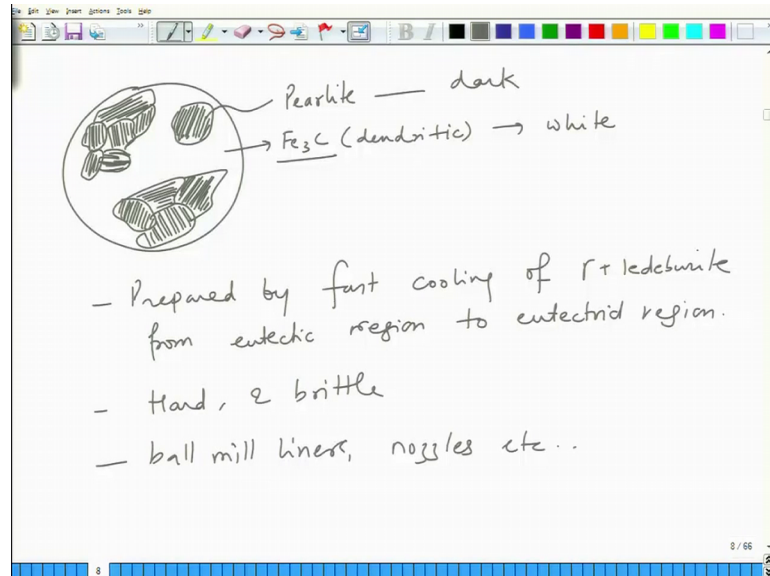 File Edit View Insert Actions Tools Help
B I
Pearlite — dark
Fe3C (dendritic) → white
– Prepared by fast cooling of r + ledeburite
from eutectic region to eutectoid region.
– Hard, & brittle
– ball mill liners, nozzles etc..
8 / 66
8